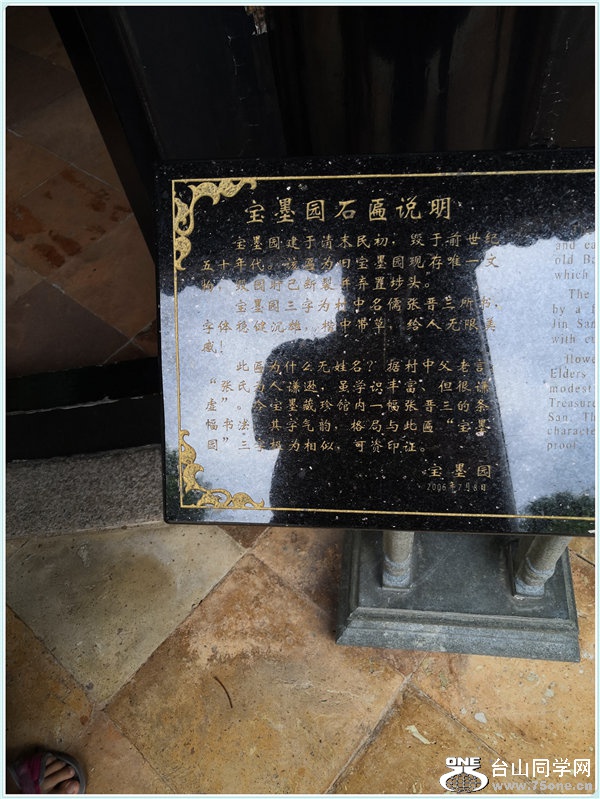 宝墨园石匾说明
宝墨园建于清末民初，毁于前世纪
五十年代。该匾为旧宝墨园现存唯一文
物，复园时已断裂并弃置埗头。
宝墨园三字为村中名儒张晋三所书，
字体稳健沉雄，楷中带草，给人无限美
感！
此匾为什么无姓名？据村中父老言
“张氏为人谦逊，虽学识丰富，但很谦
虚”。今宝墨藏珍馆内一幅张晋三的条
幅书法，其字气韵，格局与此匾“宝墨
园”三字极为相似，可资印证。
宝墨园
2006年7月8日
and ea
old Ba
which
The
by a f
Jin San
with ch
Howe
Elders
modest
Treasure
San. The
character
proof.
ONE
台山同学网
www.75one.cn